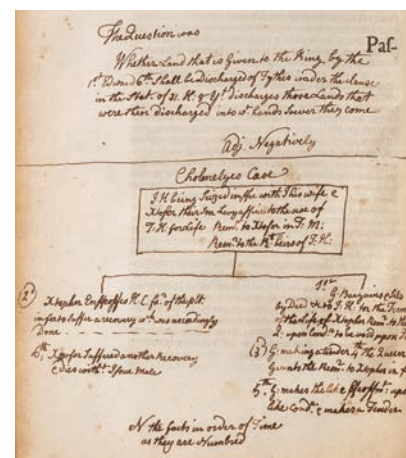 The Question was
Paſ-
Whether Land that is Given to the King by the
1st Edward 6th Shall be Discharged of Tythes under the clause
in the Stat. of 31. H. 8 yt discharges those Lands that
were then discharged into ws hands soever they come
Adj. Negatively
Cholmelyes Case
J H being Seized in fee with J his wife &
Xtofer their Son Levy a fine to the use of
J. H for Life Rem. to Xtofer in T. M:
Rem. to the Rt heirs of J. H:
2
Xtopher Enfeoffes H. C. of the plt
in fee to suffer a recovery wch was accordingly
Done
6th Xtofer Suffered another Recovery
& dies witht Issue Male
1st
G: Bargains & Sels
by Deed to J. H. for the Term
of the Life of Xtopher Rem. to the
Q. upon Condn to be void upon T
(3) G: making a tender 4th the Queen
Grants the Rem. to Xtopher in
5th G: makes the like feoffmt upo
like Condn & makes a Tender
N the facts in order of Time
as they are Numbred